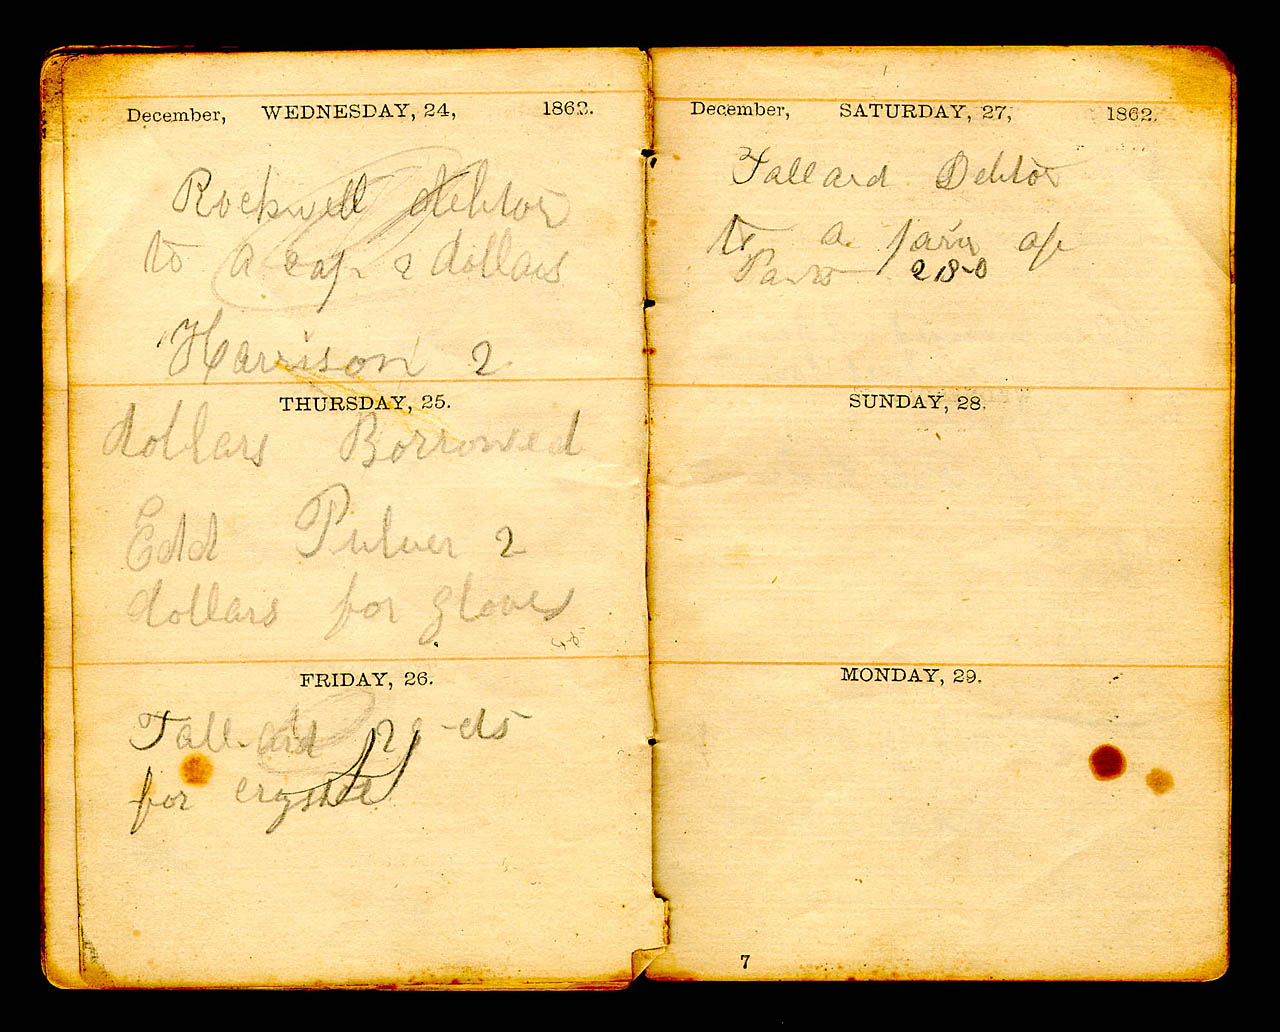 December, WEDNESDAY, 24, 1862.
Rockwell debtor
to a cap 2 dollars
Harrison 2
THURSDAY, 25.
dollars Borrowed
Edd Pulver 2
dollars for gloves
FRIDAY, 26.
Tallard 20-cts
for crystal
December, SATURDAY, 27, 1862.
Tallard Debtor
to a pair of
Pants 2 80
SUNDAY, 28.
MONDAY, 29.
7